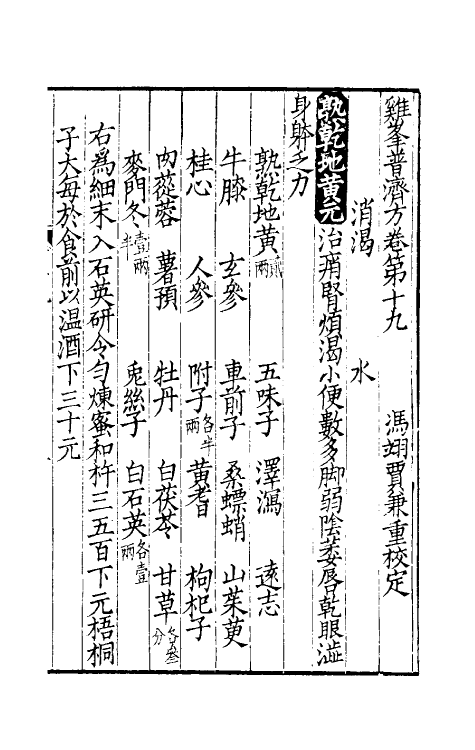 雞峯普濟方卷第十九　馮翊賈兼重校定
消渴　水
熟乾地黄元治痟腎煩渴小便數多脚弱陰萎唇乾眼澁
身躰乏力
熟乾地黄貳兩　五味子　澤瀉　遠志
牛膝　玄參　車前子　桑螵蛸　山茱萸
桂心　人參　附子各半兩　黄耆　枸杞子
肉蓯蓉　薯預　牡丹　白茯苓　甘草各叁分
麥門冬壹兩半　兎絲子　白石英各壹兩
右爲細末入石英研令勻煉蜜和杵三五百下元梧桐
子大每於食前以温酒下三十元